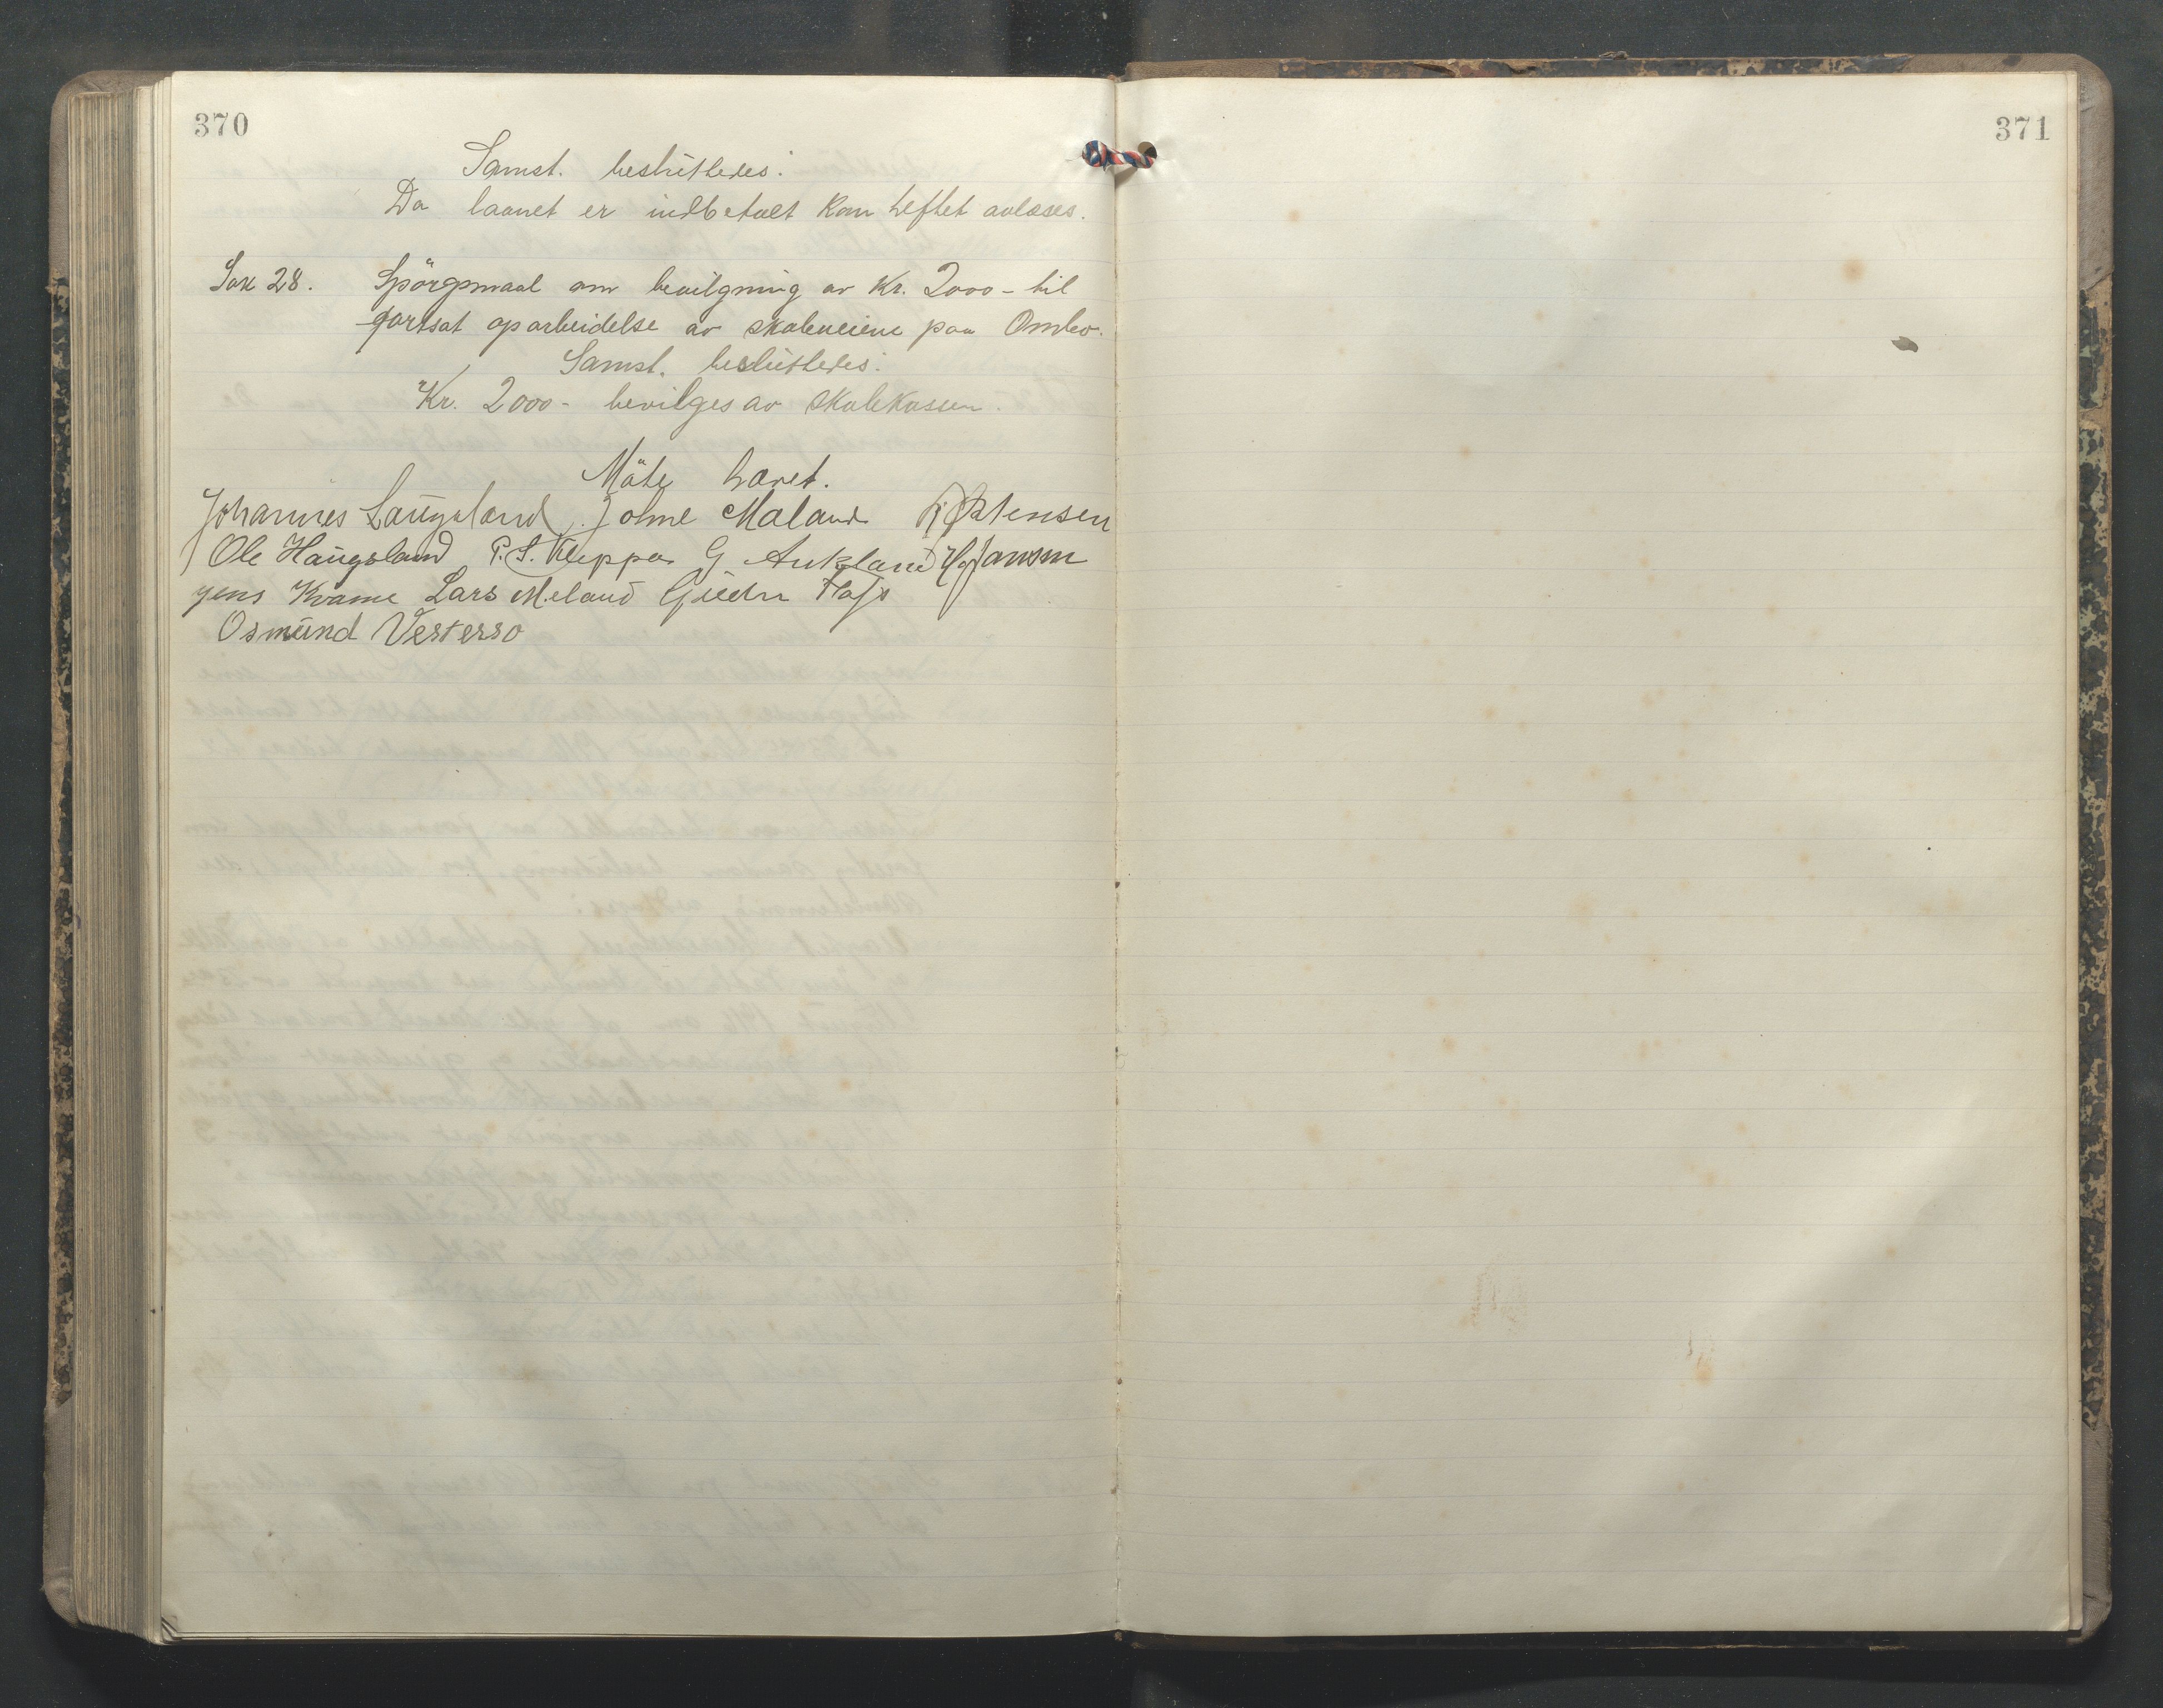 370
Samst. beslutteds:
Da laanet er indbetalt kan heftet avlæses.
Sak 28. Spörgsmaal om bevilgning av Kr. 2000 - til
fortsat oparbeidelse av skoleveiene paa Ombo.
Samst. beslutteds:
Kr. 2000 - bevilges av skolekassen.
Möte hævet.
Johannes Laugaland Johne Maland Östensen
Ole Haugsland P. S. Kleppa G Aukland Jansen
Jens Kvame Lars Meland
Osmund Vestersø
371